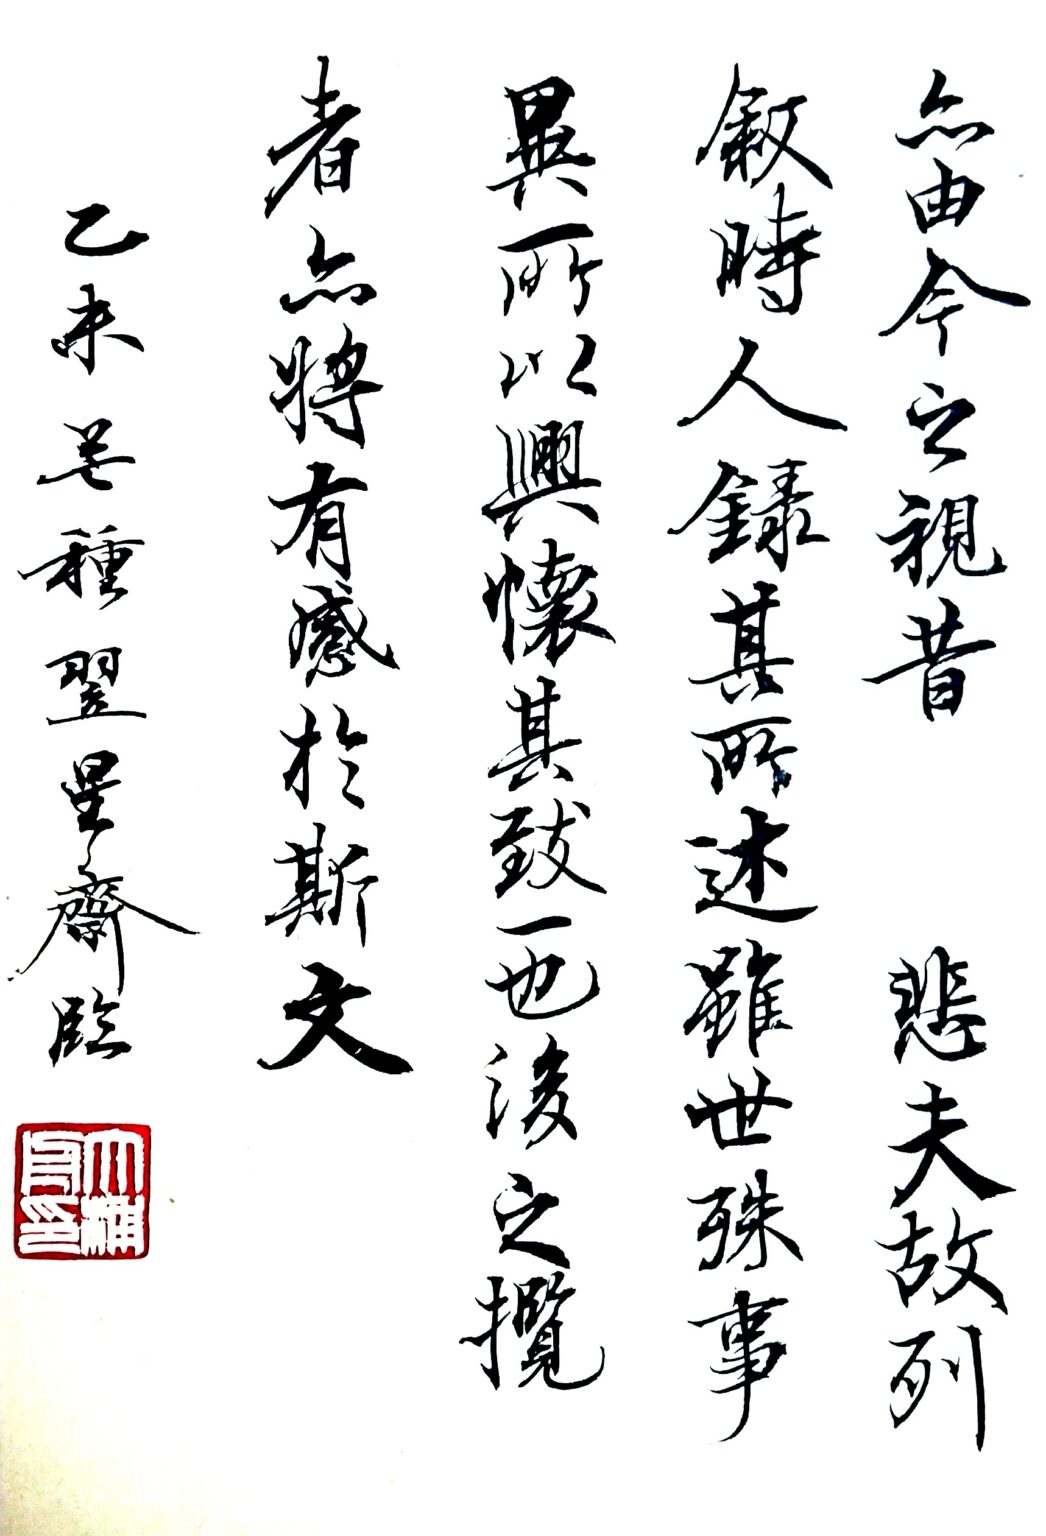 亦由今之視昔 悲夫故列
敘時人錄其所述雖世殊事
異所以興懷其致一也後之攬
者亦將有感於斯文
乙未芒種翌星齋臨